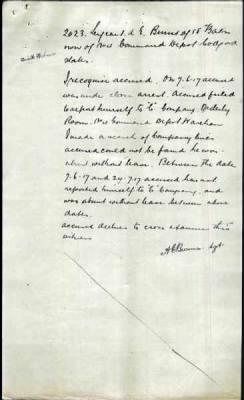 2023. Sergeant A E Burns of 15 Batn
now of No 1 Command Depot Codford
states.
I recognise accused. On 7.6.17 accused
was under close arrest. Accused failed
to report himself to "C" Company Orderly
Room, No 1 Command Depot Wareham
I made a search of Company lines
accused could not be found he was
absent without leave. Between the dates
7.6.17 and 24.7.17 accused has not
reported himself to "C" Company, and
was absent without leave between above
dates.
accused declines to cross examine this
witness
A E Burns Sgt